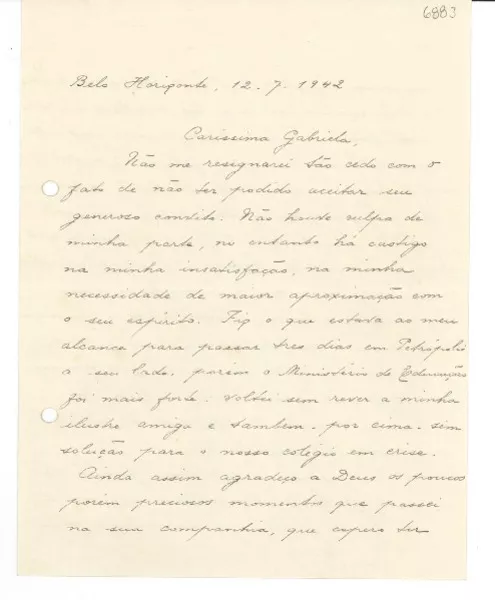 6883
Belo Horizonte, 12.7.1942
Caríssima Gabriela,
Não me resignarei tão cedo com o
fato de não ter podido aceitar seu
generoso convite. Não houve culpa de
minha parte, no entanto há castigo
na minha insatisfação, na minha
necessidade de maior aproximação com
o seu espírito. Fiz o que estava ao meu
alcance para passar tres dias em Petrópolis
a seu lado, porém o Ministério de Educação
foi mais forte. Voltei sem rever a minha
ilustre amiga e tambem, por cima, sem
solução para o nosso colégio em crise.
Ainda assim agradeço a Deus os poucos
porém preciosos momentos que passei
na sua companhia, que espero ter